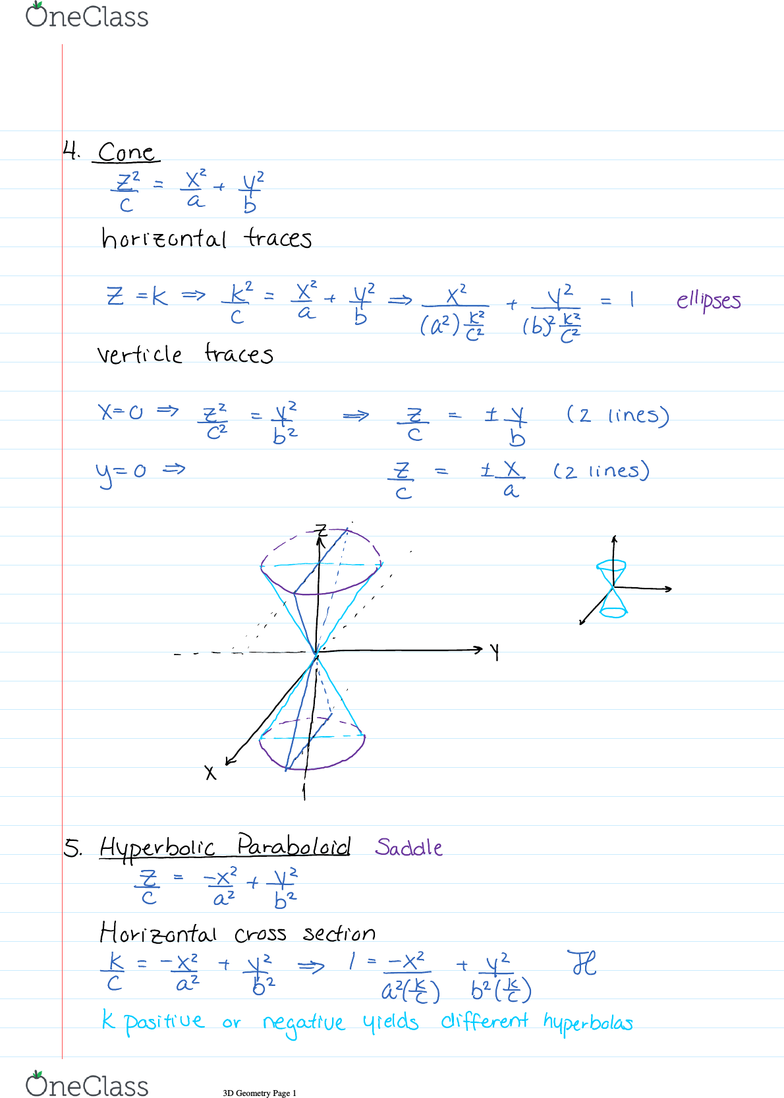 OneClass
4. Cone
z²/c = x²/a + y²/b
horizontal traces
z = k ⇒ k²/c = x²/a + y²/b ⇒ x²/((a²)k²/c²) + y²/((b)²k²/c²) = 1 ellipses
verticle traces
x=0 ⇒ z²/c² = y²/b² ⇒ z/c = ± y/b (2 lines)
y=0 ⇒ z/c = ± x/a (2 lines)
z
y
x
5. Hyperbolic Paraboloid Saddle
z/c = -x²/a² + y²/b²
Horizontal cross section
k/c = -x²/a² + y²/b² ⇒ 1 = -x²/(a²(k/c)) + y²/(b²(k/c)) ℋ
k positive or negative yields different hyperbolas
OneClass
3D Geometry Page 1